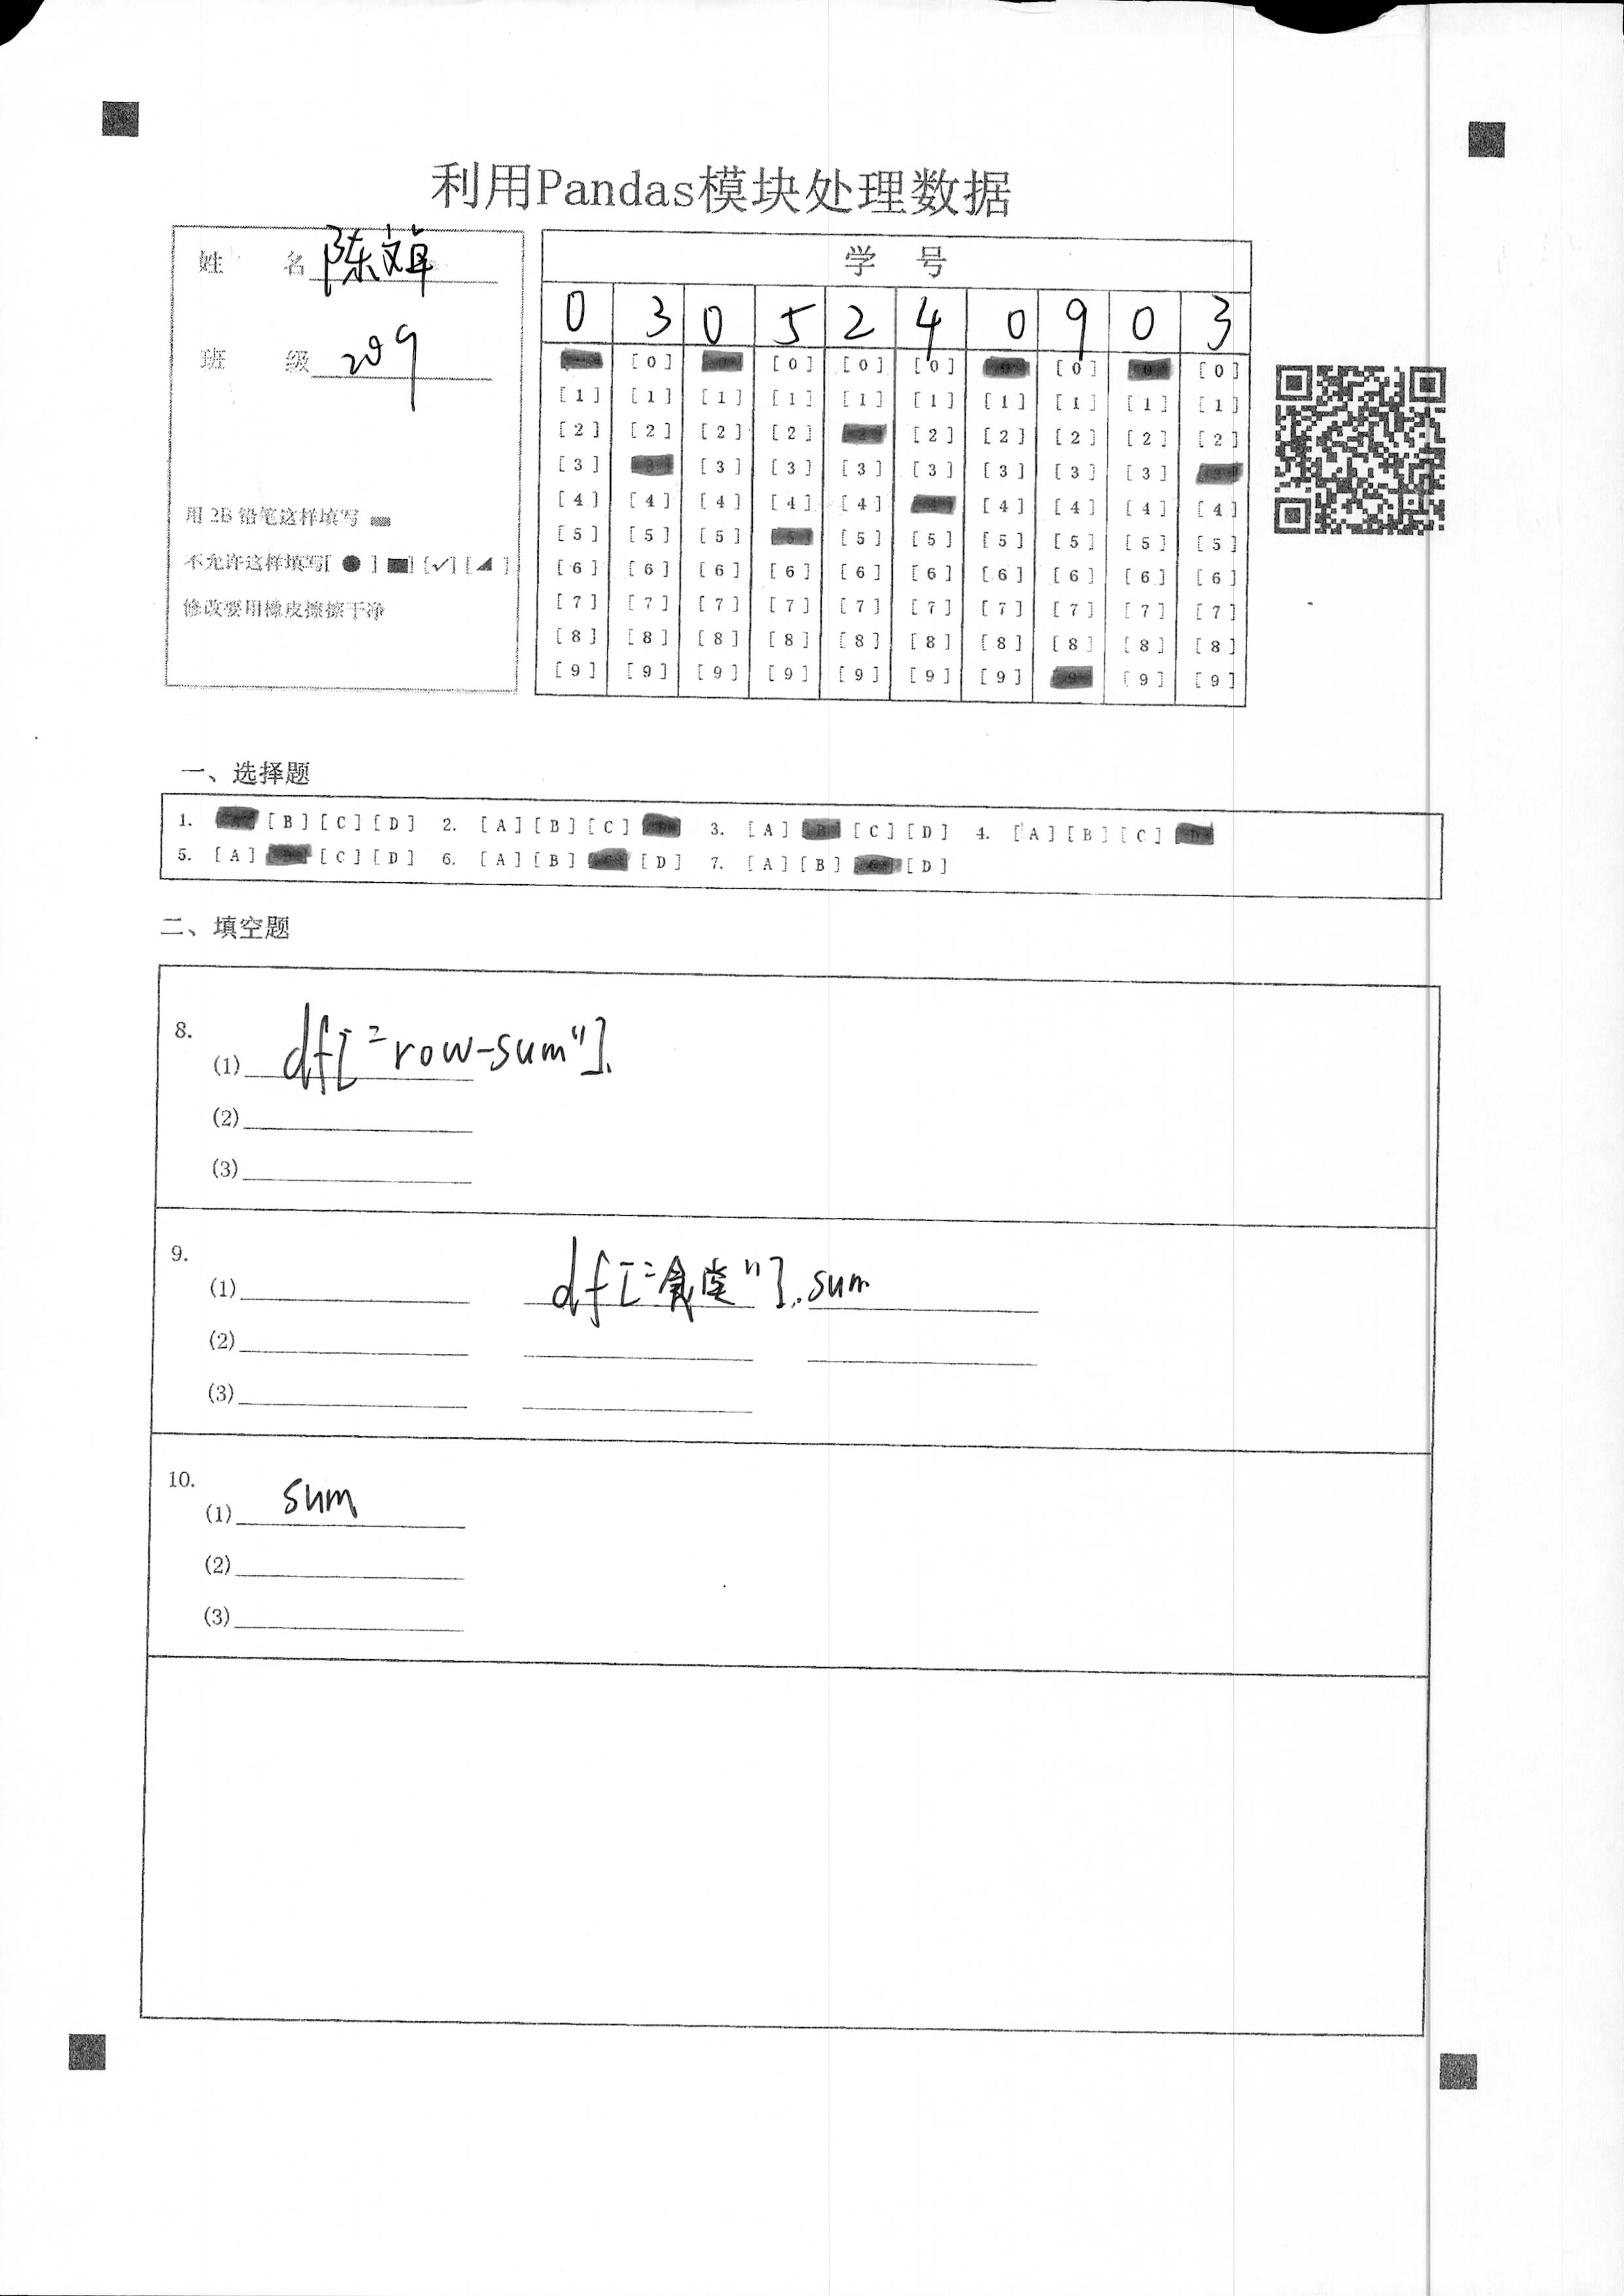 利用Pandas模块处理数据
姓 名 陈
班 级 209
用 2B 铅笔这样填写
不允许这样填写[ ● ] ■ [✓] [◢ ]
修改要用橡皮擦擦干净
学 号
0 3 0 5 2 4 0 9 0 3
[0] [0] [0] [0] [0] [0]
[1] [1] [1] [1] [1] [1] [1] [1] [1] [1]
[2] [2] [2] [2] [2] [2] [2] [2] [2] [2]
[3] [3] [3] [3] [3] [3] [3] [3] [3] [3]
[4] [4] [4] [4] [4] [4] [4] [4] [4] [4]
[5] [5] [5] [5] [5] [5] [5] [5] [5] [5]
[6] [6] [6] [6] [6] [6] [6] [6] [6] [6]
[7] [7] [7] [7] [7] [7] [7] [7] [7] [7]
[8] [8] [8] [8] [8] [8] [8] [8] [8] [8]
[9] [9] [9] [9] [9] [9] [9] [9] [9] [9]
一、选择题
1. [B] [C] [D] 2. [A] [B] [C] [D] 3. [A] [B] [C] [D] 4. [A] [B] [C] [D]
5. [A] [B] [C] [D] 6. [A] [B] [C] [D] 7. [A] [B] [C] [D]
二、填空题
8.
(1) df["row-sum"].
(2)
(3)
9.
(1) df["食堂"].sum
(2)
(3)
10.
(1) sum
(2)
(3)